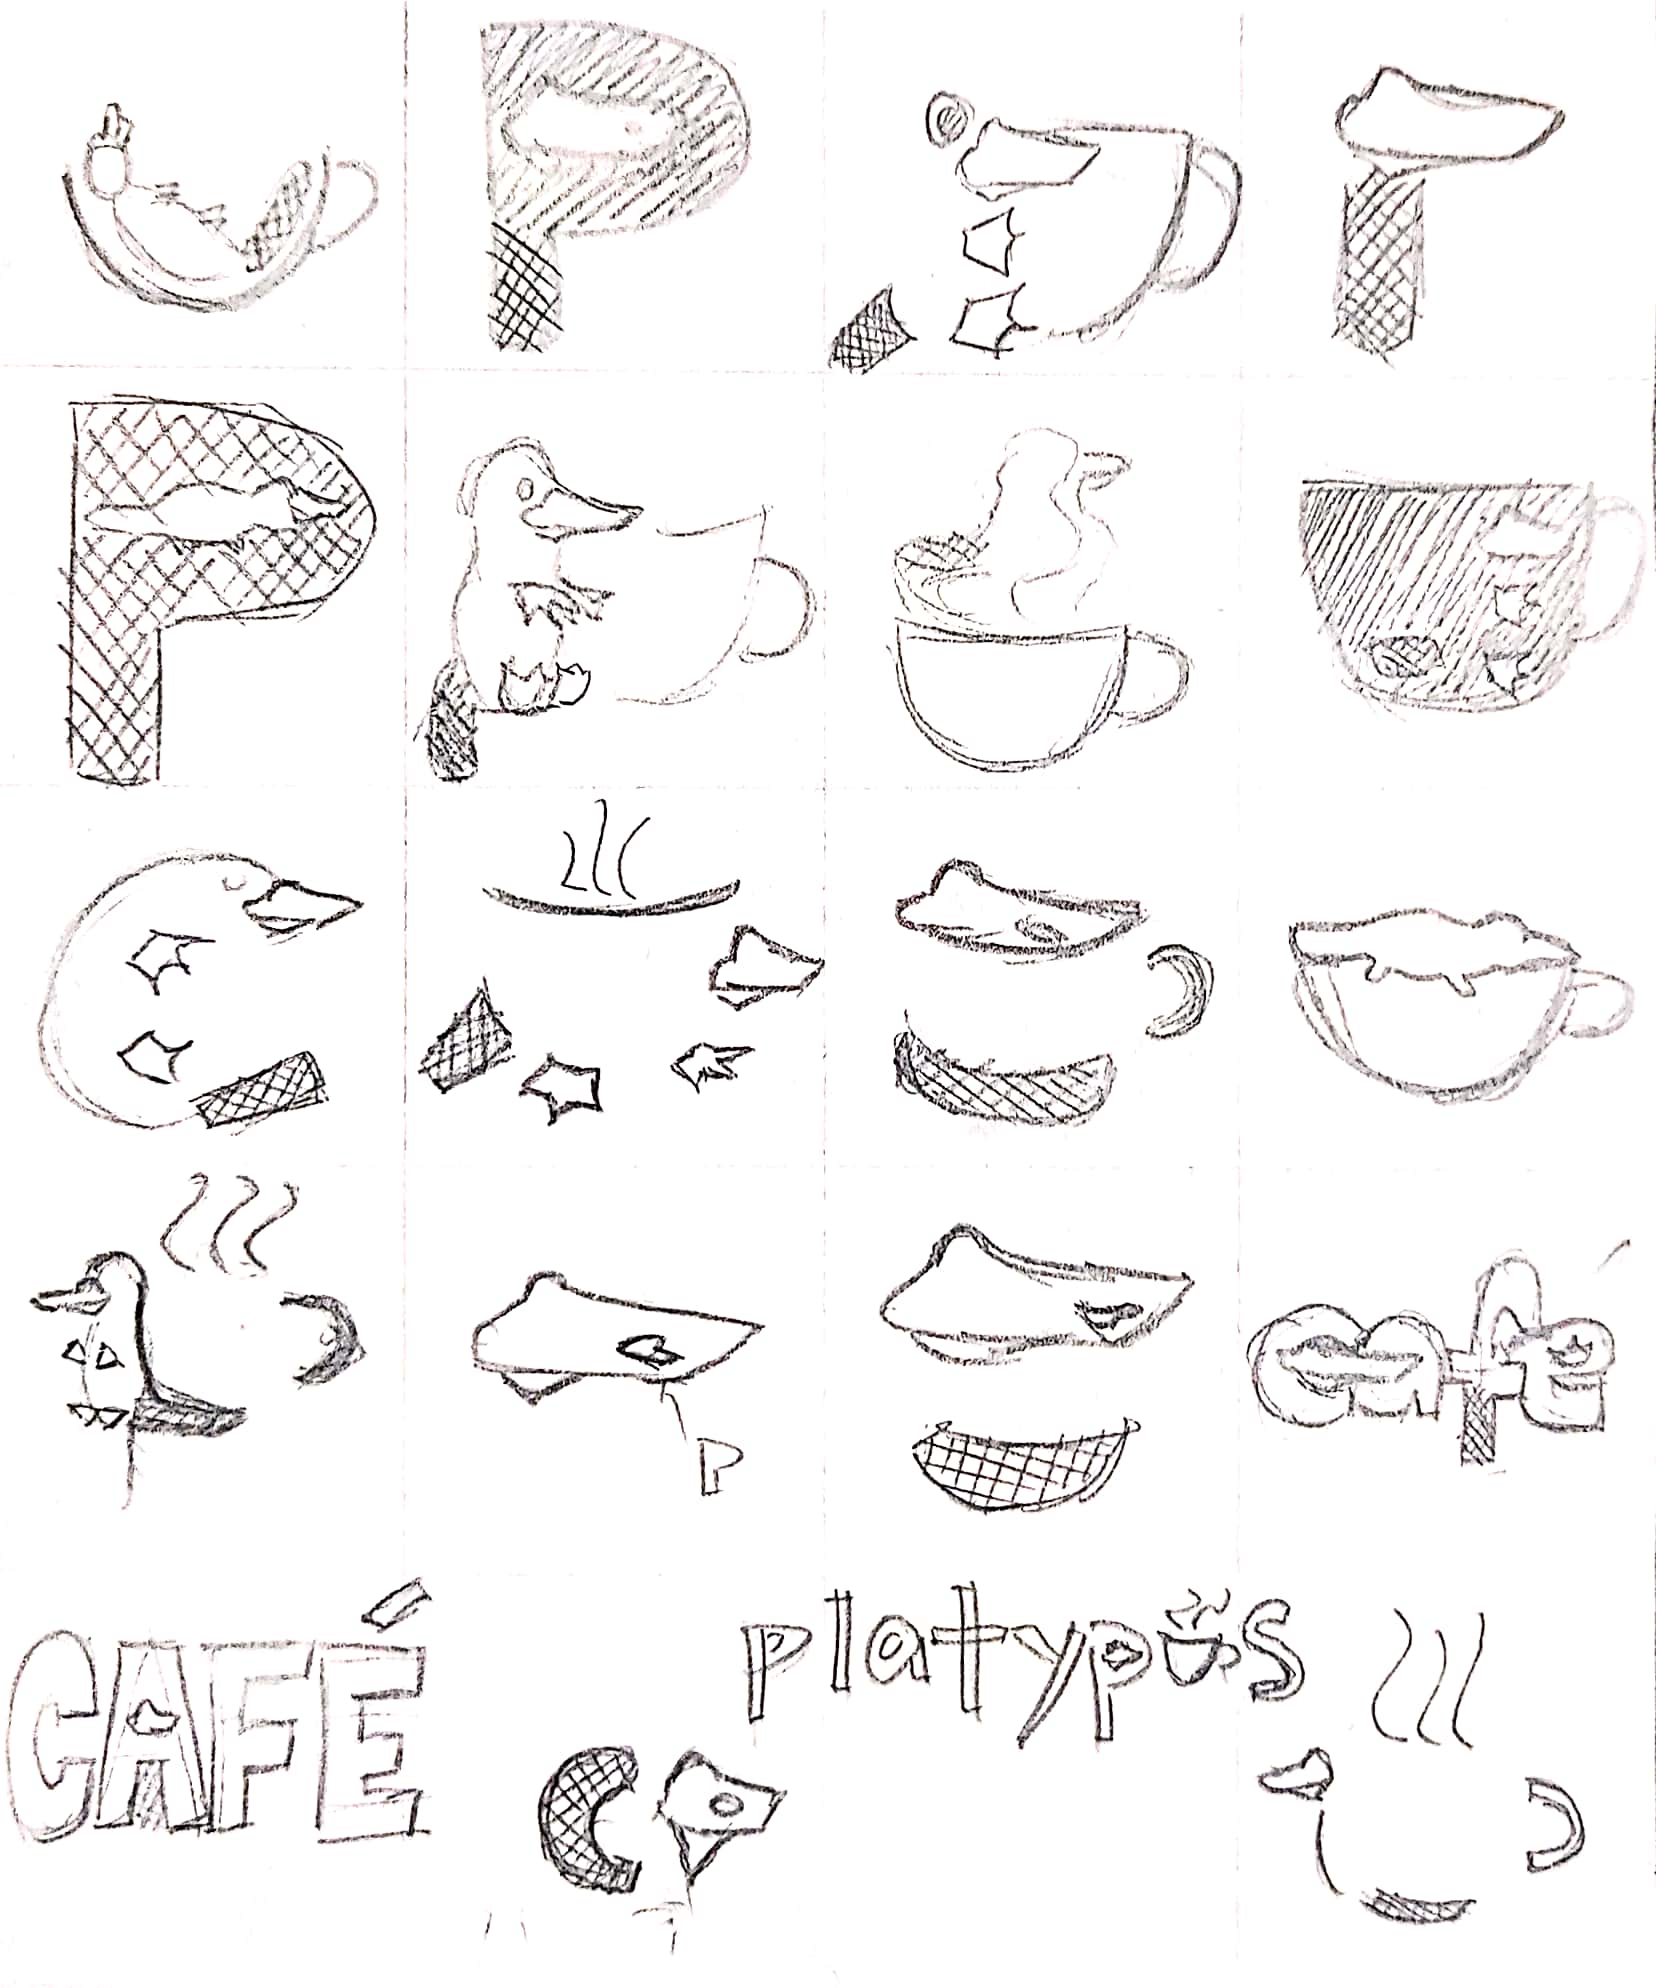 P
P
P
café
CAFÉ
platypus
CP